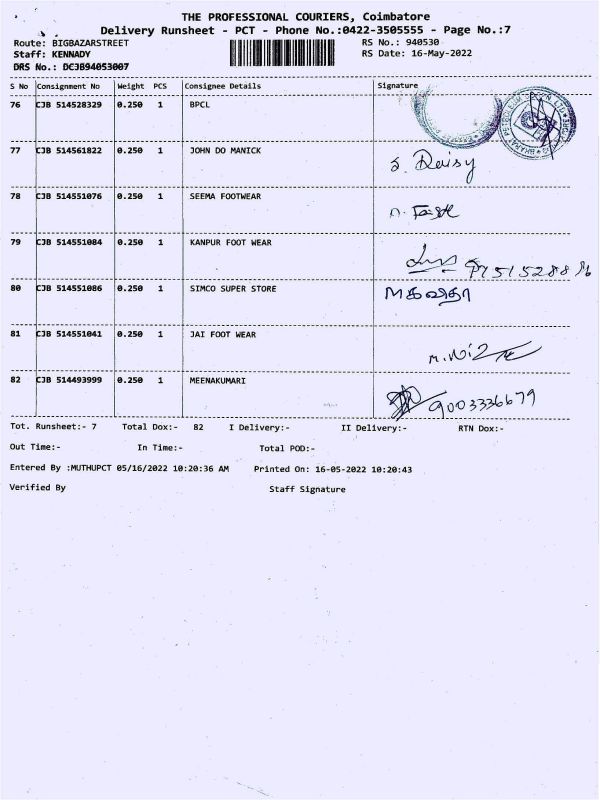 THE PROFESSIONAL COURIERS, Coimbatore
Delivery Runsheet - PCT - Phone No.:0422-3505555 - Page No.:7
Route: BIGBAZARSTREET RS No.: 940530
Staff: KENNADY RS Date: 16-May-2022
DRS No.: DCJB94053007
S No Consignment No Weight PCS Consignee Details Signature
76 CJB 514528329 0.250 1 BPCL
77 CJB 514561822 0.250 1 JOHN DO MANICK
S. Daisy
78 CJB 514551076 0.250 1 SEEMA FOOTWEAR
79 CJB 514551084 0.250 1 KANPUR FOOT WEAR
80 CJB 514551086 0.250 1 SIMCO SUPER STORE
81 CJB 514551041 0.250 1 JAI FOOT WEAR
82 CJB 514493999 0.250 1 MEENAKUMARI
9003336679
Tot. Runsheet:- 7 Total Dox:- 82 I Delivery:- II Delivery:- RTN Dox:-
Out Time:- In Time:- Total POD:-
Entered By :MUTHUPCT 05/16/2022 10:20:36 AM Printed On: 16-05-2022 10:20:43
Verified By Staff Signature